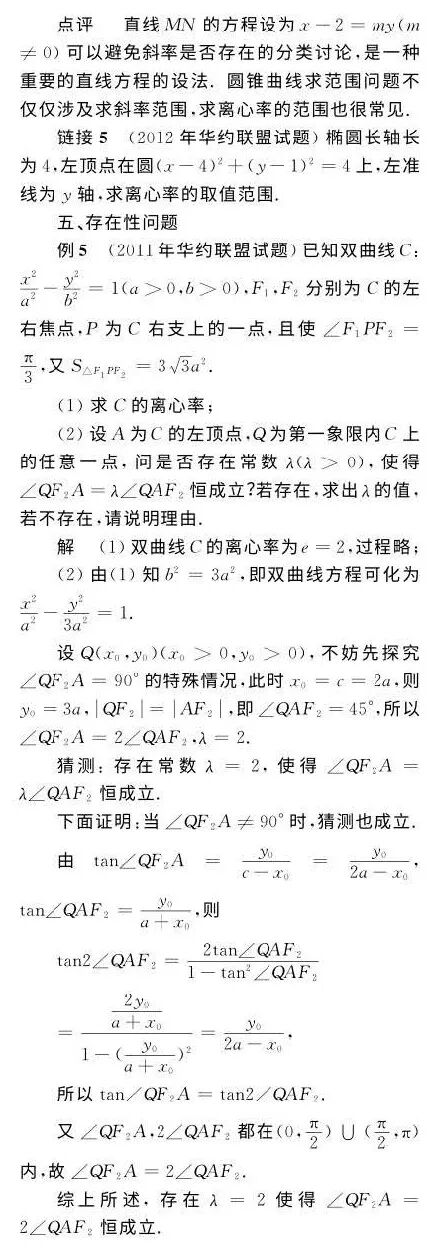 点评 直线MN的方程设为x－2＝my(m
≠0)可以避免斜率是否存在的分类讨论,是一种
重要的直线方程的设法. 圆锥曲线求范围问题不
仅仅涉及求斜率范围,求离心率的范围也很常见.
链接5 (2012年华约联盟试题)椭圆长轴长
为4,左顶点在圆(x－4)²＋(y－1)²＝4上,左准
线为y轴,求离心率的取值范围.
五、存在性问题
例5 (2011年华约联盟试题)已知双曲线C:
x²/a²－y²/b²＝1(a＞0,b＞0),F₁,F₂分别为C的左
右焦点,P为C右支上的一点,且使∠F₁PF₂＝
π/3,又S△F₁PF₂＝3√3a².
(1)求C的离心率;
(2)设A为C的左顶点,Q为第一象限内C上
的任意一点,问是否存在常数λ(λ＞0),使得
∠QF₂A＝λ∠QAF₂恒成立?若存在,求出λ的值,
若不存在,请说明理由.
解 (1)双曲线C的离心率为e＝2,过程略;
(2)由(1)知b²＝3a²,即双曲线方程可化为
x²/a²－y²/3a²＝1.
设Q(x₀,y₀)(x₀＞0,y₀＞0),不妨先探究
∠QF₂A＝90°的特殊情况,此时x₀＝c＝2a,则
y₀＝3a,|QF₂|＝|AF₂|,即∠QAF₂＝45°,所以
∠QF₂A＝2∠QAF₂,λ＝2.
猜测:存在常数λ＝2,使得∠QF₂A＝
λ∠QAF₂恒成立.
下面证明:当∠QF₂A≠90°时,猜测也成立.
由 tan∠QF₂A ＝ y₀/(c－x₀) ＝ y₀/(2a－x₀),
tan∠QAF₂＝y₀/(a＋x₀),则
tan2∠QAF₂＝2tan∠QAF₂/(1－tan²∠QAF₂)
＝(2y₀/(a＋x₀))/(1－(y₀/(a＋x₀))²)＝y₀/(2a－x₀),
所以tan∠QF₂A＝tan2∠QAF₂.
又∠QF₂A,2∠QAF₂都在(0,π/2)∪(π/2,π)
内,故∠QF₂A＝2∠QAF₂.
综上所述,存在λ＝2使得∠QF₂A＝
2∠QAF₂恒成立.